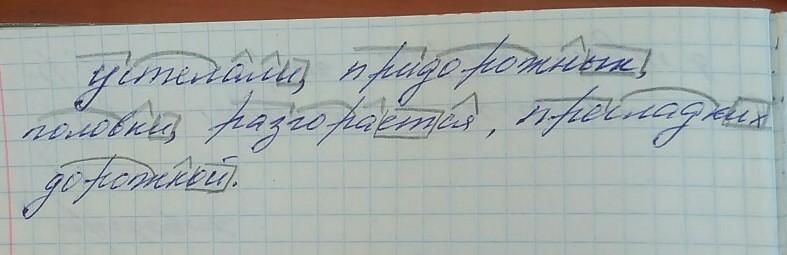 устелали, придорожных,
головки, разгорается, пресладких
дорожкой.